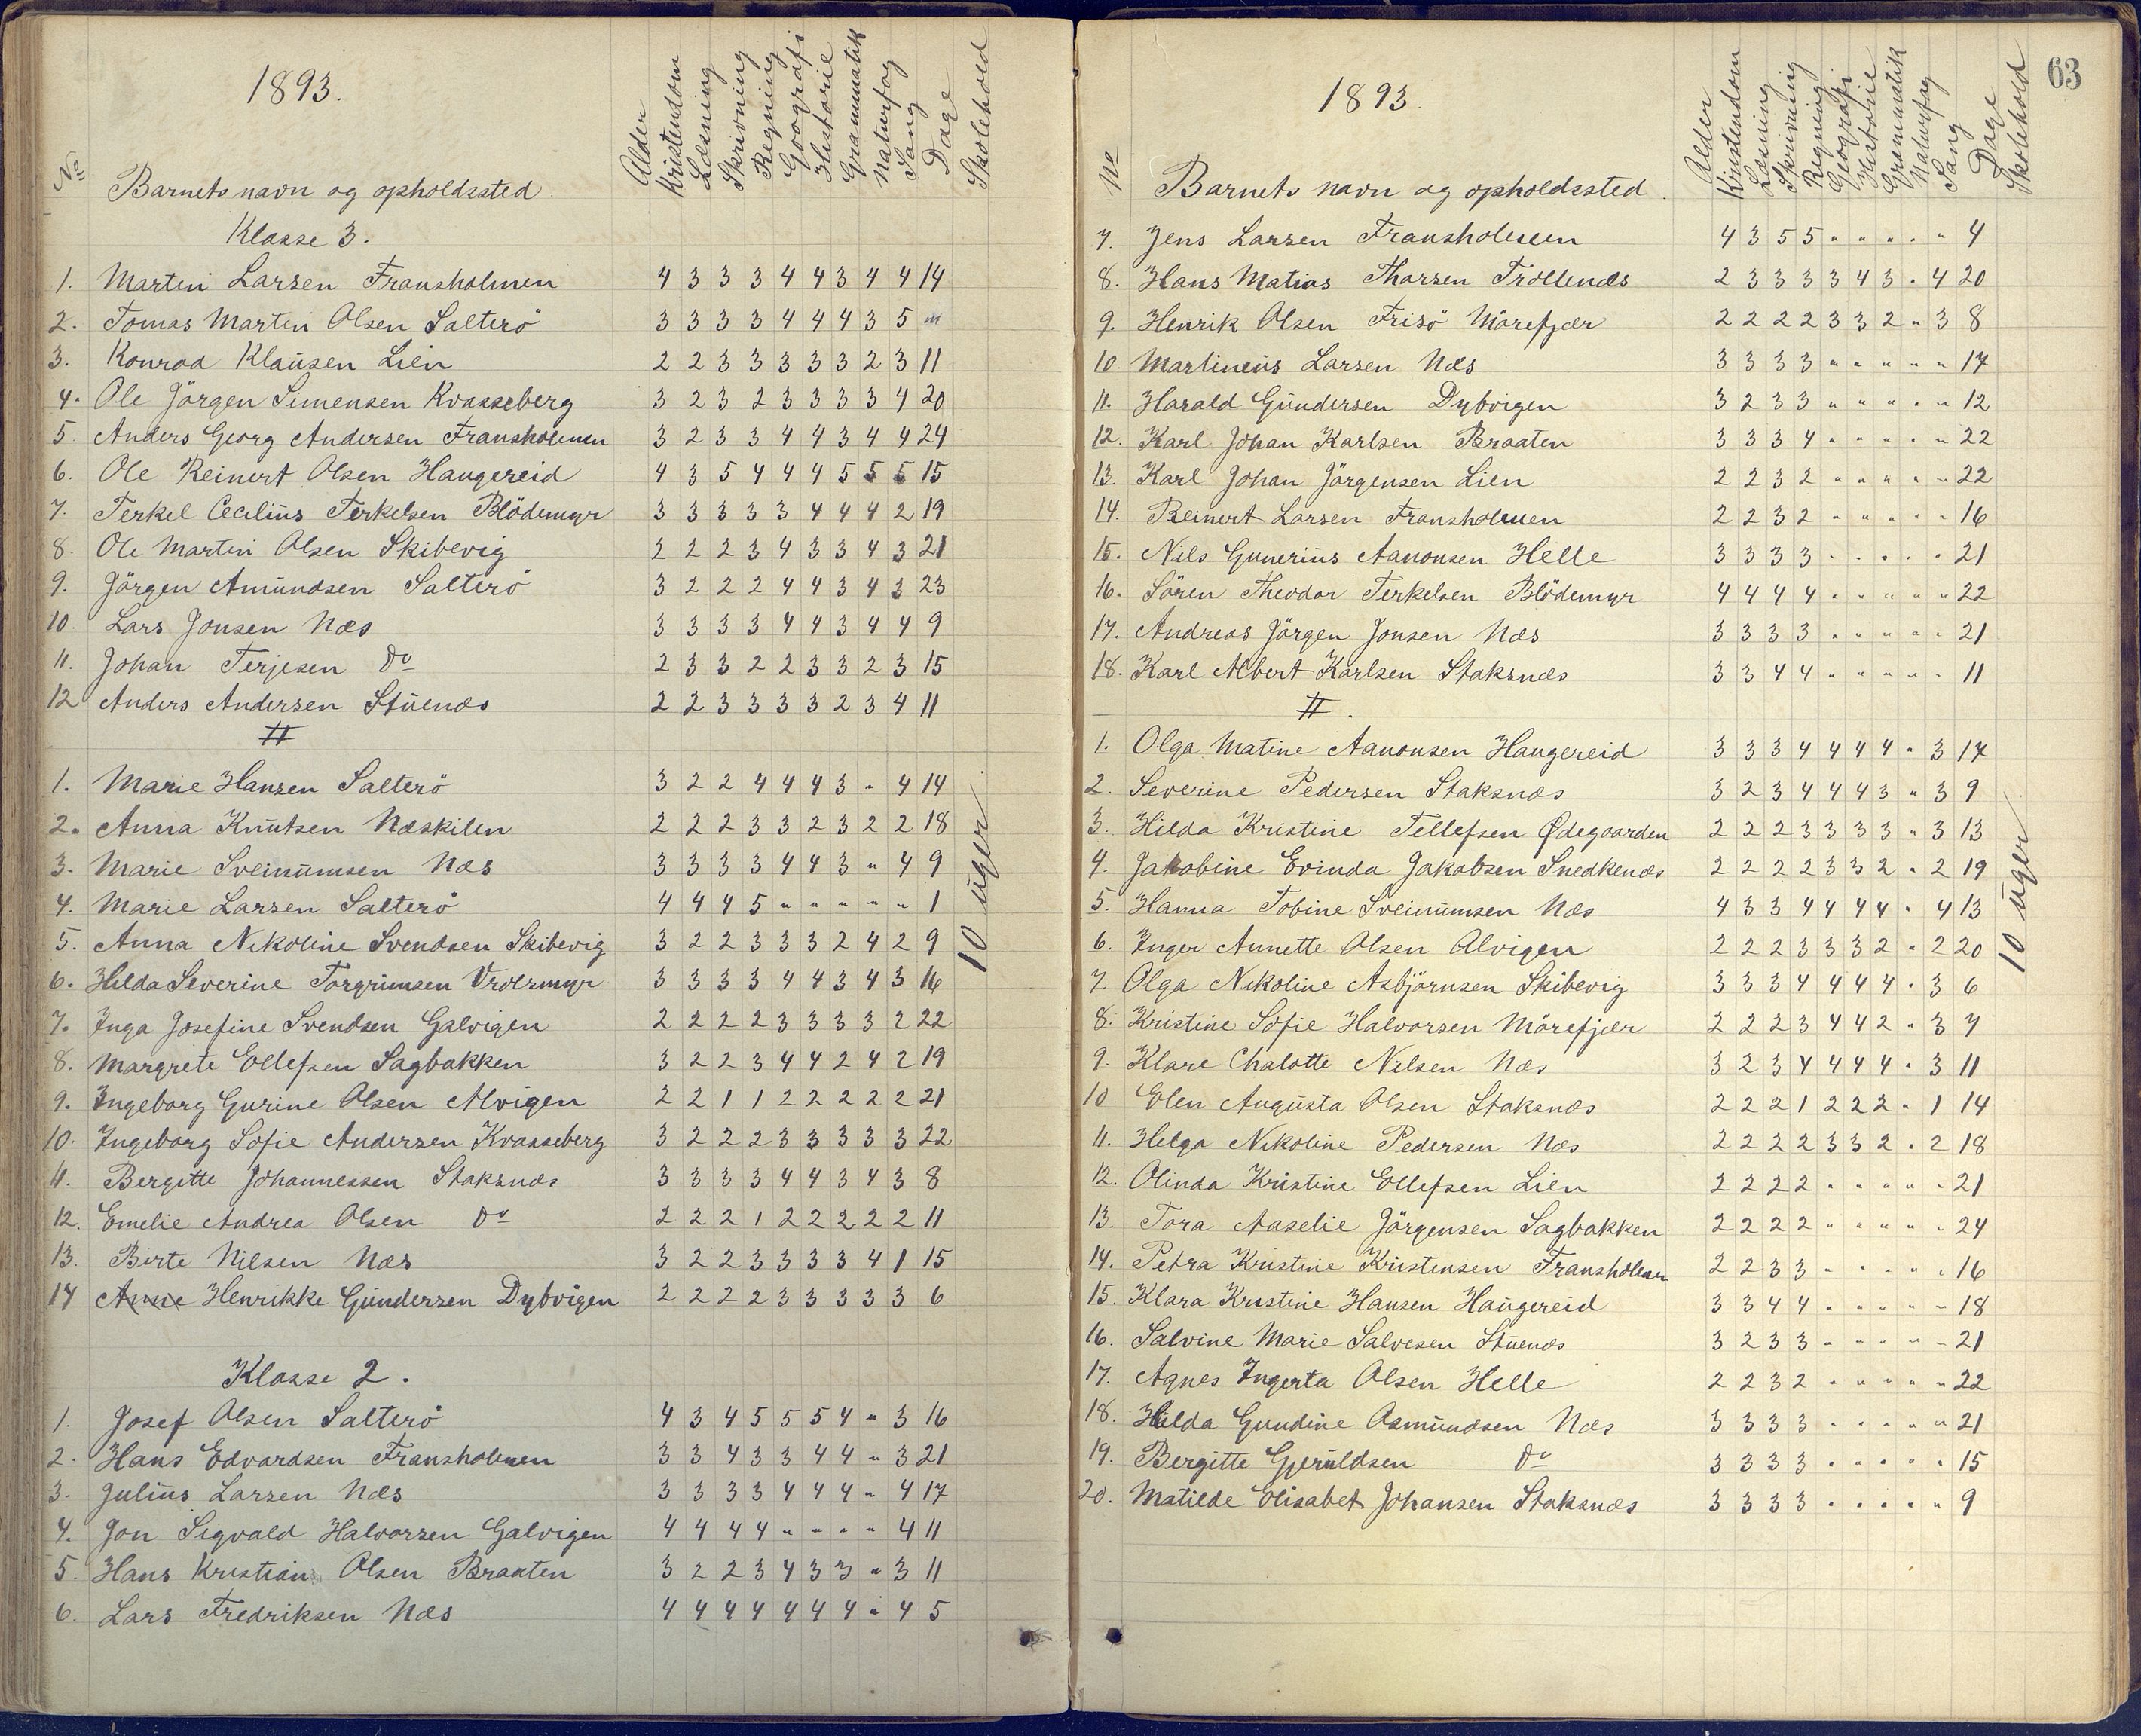 1893.
No Barnets navn og opholdssted Alder Kristendom Læsning Skrivning Regning Geografi Historie Grammatik Naturfag Sang Dage Skolehold
Klasse 3.
1. Martin Larsen Fransholmen 4 3 3 3 4 4 3 4 4 14
2. Tomas Martin Olsen Salterö 3 3 3 3 4 4 4 3 5 "
3. Konrad Klausen Lien 2 2 3 3 3 3 3 2 3 11
4. Ole Jörgen Simensen Kvasseberg 3 2 3 2 3 3 3 3 4 20
5. Anders Georg Andersen Fransholmen 3 2 3 3 4 4 3 4 4 24
6. Ole Reinert Olsen Haugereid 4 3 5 4 4 4 5 5 5 15
7. Terkel Cecilius Terkelsen Blödemyr 3 3 3 3 3 4 4 4 2 19
8. Ole Martin Olsen Skibevig 2 2 2 3 4 3 3 4 3 21
9. Jörgen Amundsen Salterö 3 2 2 2 4 4 3 4 3 23
10. Lars Jonsen Næs 3 3 3 3 4 4 3 4 4 9
11. Johan Terjesen Do 2 3 3 2 2 3 3 2 3 15
12 Anders Andersen Stuenæs 2 2 3 3 3 3 2 3 4 11
1. Marie Hansen Salterö 3 2 2 4 4 4 3 " 4 14
2. Anna Knutsen Næskilen 2 2 2 3 3 2 3 2 2 18
3. Marie Sveinumsen Næs 3 3 3 3 4 4 3 " 4 9
4. Marie Larsen Salterö 4 4 4 5 " " " " " 1
5. Anna Nikoline Svendsen Skibevig 3 2 2 3 3 3 2 4 2 9
6. Hilda Severine Torgrimsen Vrolsmyr 3 3 3 3 4 4 3 4 3 16
7. Inga Josefine Svendsen Galvigen 2 2 2 2 3 3 3 3 2 22
8. Margrete Ellefsen Sagbakken 3 2 2 3 4 4 2 4 2 19
9. Ingeborg Gurine Olsen Alvigen 2 2 1 1 2 2 2 2 2 21
10. Ingeborg Sofie Andersen Kvasseberg 3 2 2 2 3 3 3 3 3 22
11. Bergitte Johannessen Staksnæs 3 3 3 3 4 4 3 4 3 8
12. Emelie Andrea Olsen Do 2 2 2 1 2 2 2 2 2 11
13. Birte Nilsen Næs 3 2 2 3 3 3 3 4 1 15
14 Anne Henrikke Gundersen Dybvigen 2 2 2 2 3 3 3 3 3 6
10 uger
Klasse 2.
1. Josef Olsen Salterö 4 3 4 5 5 5 4 " 3 16
2. Hans Edvardsen Fransholmen 3 3 4 3 3 4 4 " 3 21
3. Julius Larsen Næs 3 3 3 3 4 4 4 " 4 17
4. Jon Sigvald Halvorsen Galvigen 4 4 4 4 " " " " 4 11
5. Hans Kristian Olsen Braaten 3 2 2 3 4 3 3 " 3 11
6. Lars Fredriksen Næs 4 4 4 4 4 4 4 " 4 5
63
1893.
No Barnets navn og opholdssted. Alder Kristendom Læsning Skrivning Regning Geografi Historie Grammatik Naturfag Sang Dage Skolehold
7. Jens Larsen Fransholmen 4 3 5 5 " " " " " 4
8. Hans Matias Thorsen Trollenæs 2 3 3 3 3 4 3 " 4 20
9. Henrik Olsen Frisö Mörefjær 2 2 2 2 3 3 2 " 3 8
10. Martineus Larsen Næs 3 3 3 3 " " " " " 17
11. Harald Gundersen Dybvigen 3 2 3 3 " " " " " 12
12. Karl Johan Karlsen Braaten 3 3 3 4 " " " " " 22
13. Karl Johan Jörgensen Lien 2 2 3 2 " " " " " 22
14. Reinert Larsen Fransholmen 2 2 3 2 " " " " " 16
15. Nils Gunerius Aanonsen Helle 3 3 3 3 " " " " " 21
16. Sören Theodor Terkelsen Blödemyr 4 4 4 4 " " " " " 22
17. Andreas Jörgen Jonsen Næs 3 3 3 3 " " " " " 21
18. Karl Albert Karlsen Staksnæs 3 3 4 4 " " " " " 11
1. Olga Matine Aanonsen Haugereid 3 3 3 4 4 4 4 " 3 17
2. Severine Pedersen Staksnæs 3 2 3 4 4 4 3 " 3 9
3. Hilda Kristine Tellefsen Ødegaarden 2 2 2 3 3 3 3 " 3 13
4. Jakobine Evinda Jakobsen Snedkenæs 2 2 2 2 3 3 2 " 2 19
5. Hanna Tobine Sveinumsen Næs 4 3 3 4 4 4 4 " 4 13
6. Inger Annette Olsen Alvigen 2 2 2 3 3 3 2 " 2 20
7. Olga Nikoline Asbjörnsen Skibevig 3 3 3 4 4 4 4 " 3 6
8. Kristine Sofie Halvorsen Mörefjær 2 2 2 3 4 4 2 " 3 7
9. Klare Chalotte Nilsen Næs 3 2 3 4 4 4 4 " 3 11
10 Elen Augusta Olsen Staksnæs 2 2 2 1 2 2 2 " 1 14
11. Helga Nikoline Pedersen Næs 2 2 2 2 3 3 2 " 2 18
12. Olinda Kristine Ellefsen Lien 2 2 2 2 " " " " " 21
13. Tora Aaselie Jörgensen Sagbakken 2 2 2 2 " " " " " 24
14. Petra Kristine Kristensen Fransholmen 2 2 3 3 " " " " " 16
15. Klara Kristine Hansen Haugereid 3 3 4 4 " " " " " 18
16. Salvine Marie Salvesen Stuenæs 3 2 3 3 " " " " " 21
17. Agnes Ingerta Olsen Helle 2 2 3 2 " " " " " 22
18. Hilda Gundine Osmundsen Næs 3 3 3 3 " " " " " 21
19. Bergitte Gjeruldsen Do 3 3 3 3 " " " " " 15
20. Matilde Elisabet Johansen Staksnæs 3 3 3 3 " " " " " 9
10 uger